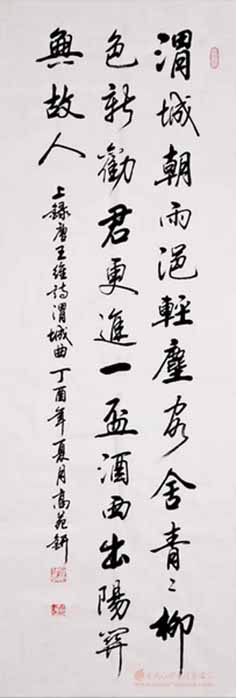 渭城朝雨浥輕塵客舍青〻柳
色新勸君更進一盃酒西出陽關
無故人
上錄唐王維詩渭城曲丁酉年夏月高苑